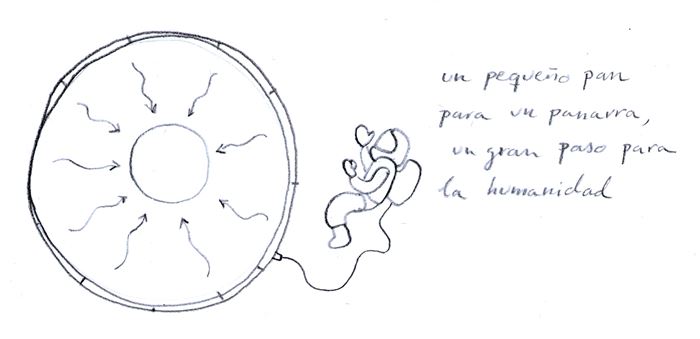 un pequeño pan
para un panarra,
un gran paso para
la humanidad